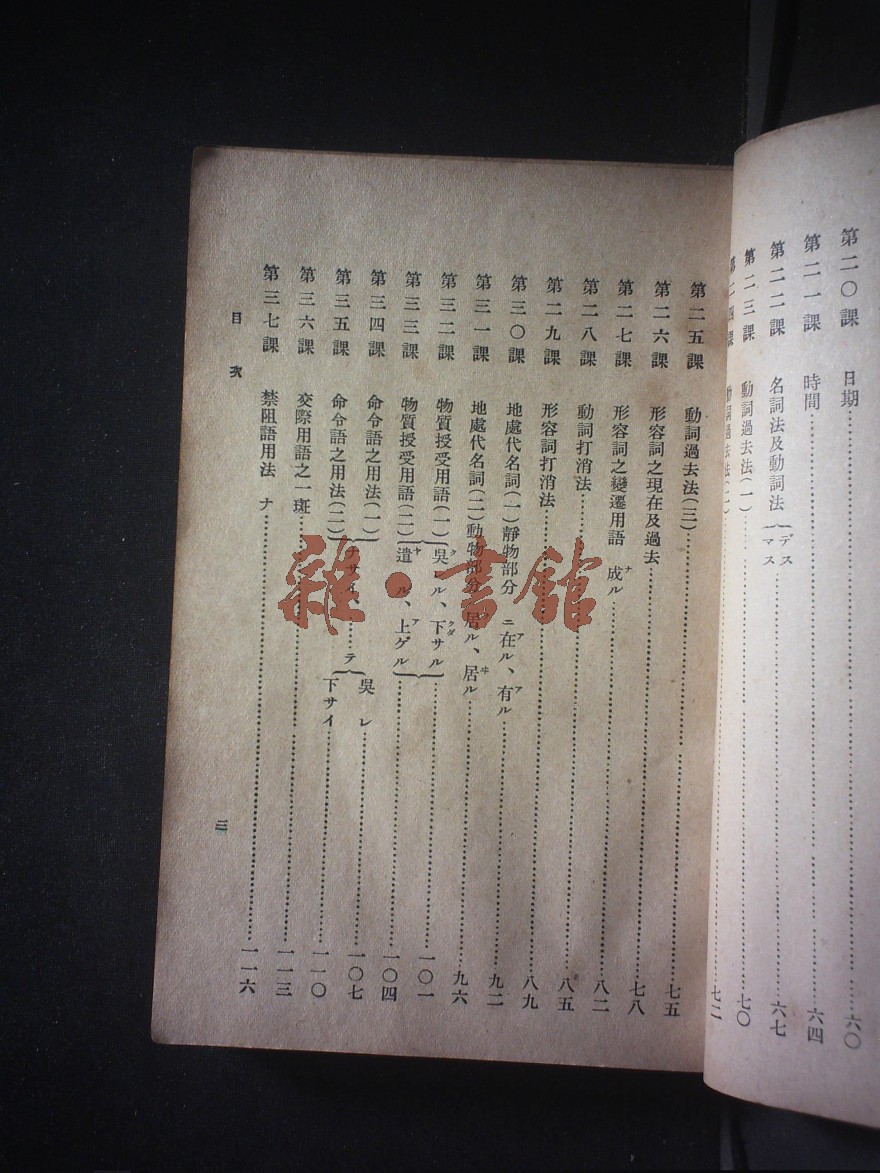 第二〇課　日期……六〇
第二一課　時間……六四
第二二課　名詞法及動詞法｛デス　マス……六七
第二三課　動詞過去法(一)……七〇
第二四課　動詞過去法(二)……七二
第二五課　動詞過去法(三)……七五
第二六課　形容詞之現在及過去……七八
第二七課　形容詞之變遷用語　成ル……八二
第二八課　動詞打消法……八五
第二九課　形容詞打消法……八九
第三〇課　地處代名詞(一)靜物部分　ニ在ル、有ル……九二
第三一課　地處代名詞(二)動物部分　居ル、居ル……九六
第三二課　物質授受用語(一)　吳レル、下サル……一〇一
第三三課　物質授受用語(二)　遣ル、上ゲル……一〇四
第三四課　命令語之用法(一)　……テ｛吳レ……一〇七
第三五課　命令語之用法(二)　ナサイ、下サイ……一一〇
第三六課　交際用語之一斑……一一三
第三七課　禁阻語用法　ナ……一一六
目次
三
雜·書館